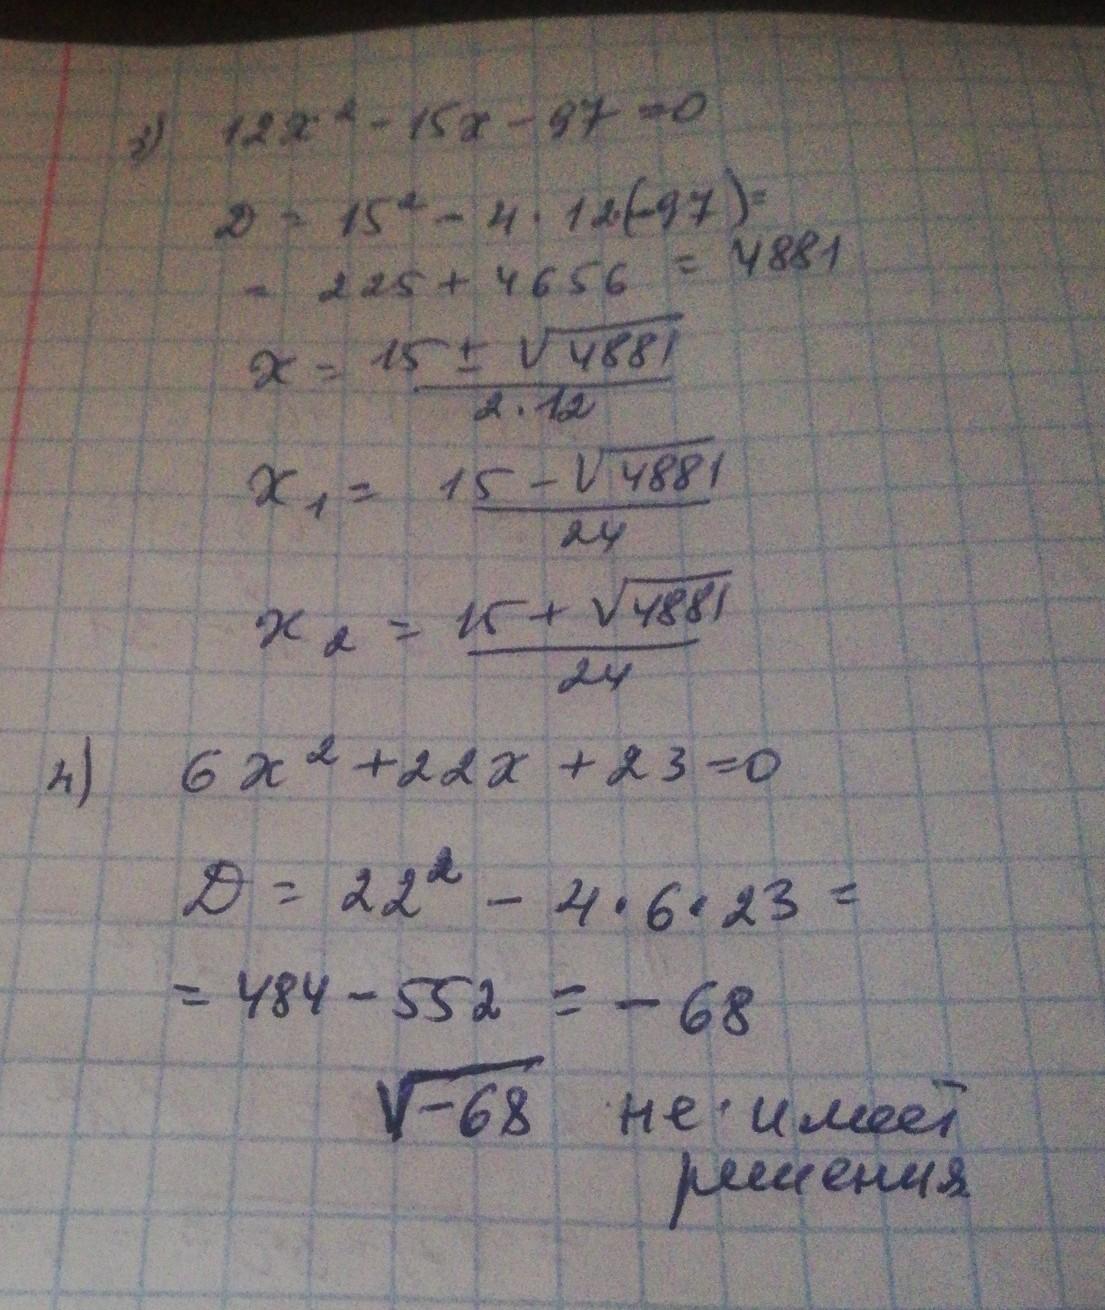 3) 12x² - 15x - 97 = 0
D = 15² - 4 · 12(-97) =
= 225 + 4656 = 4881
x = 15 ± √4881 / 2 · 12
x₁ = 15 - √4881 / 24
x₂ = 15 + √4881 / 24
4) 6x² + 22x + 23 = 0
D = 22² - 4 · 6 · 23 =
= 484 - 552 = - 68
√-68 не имеет
решения